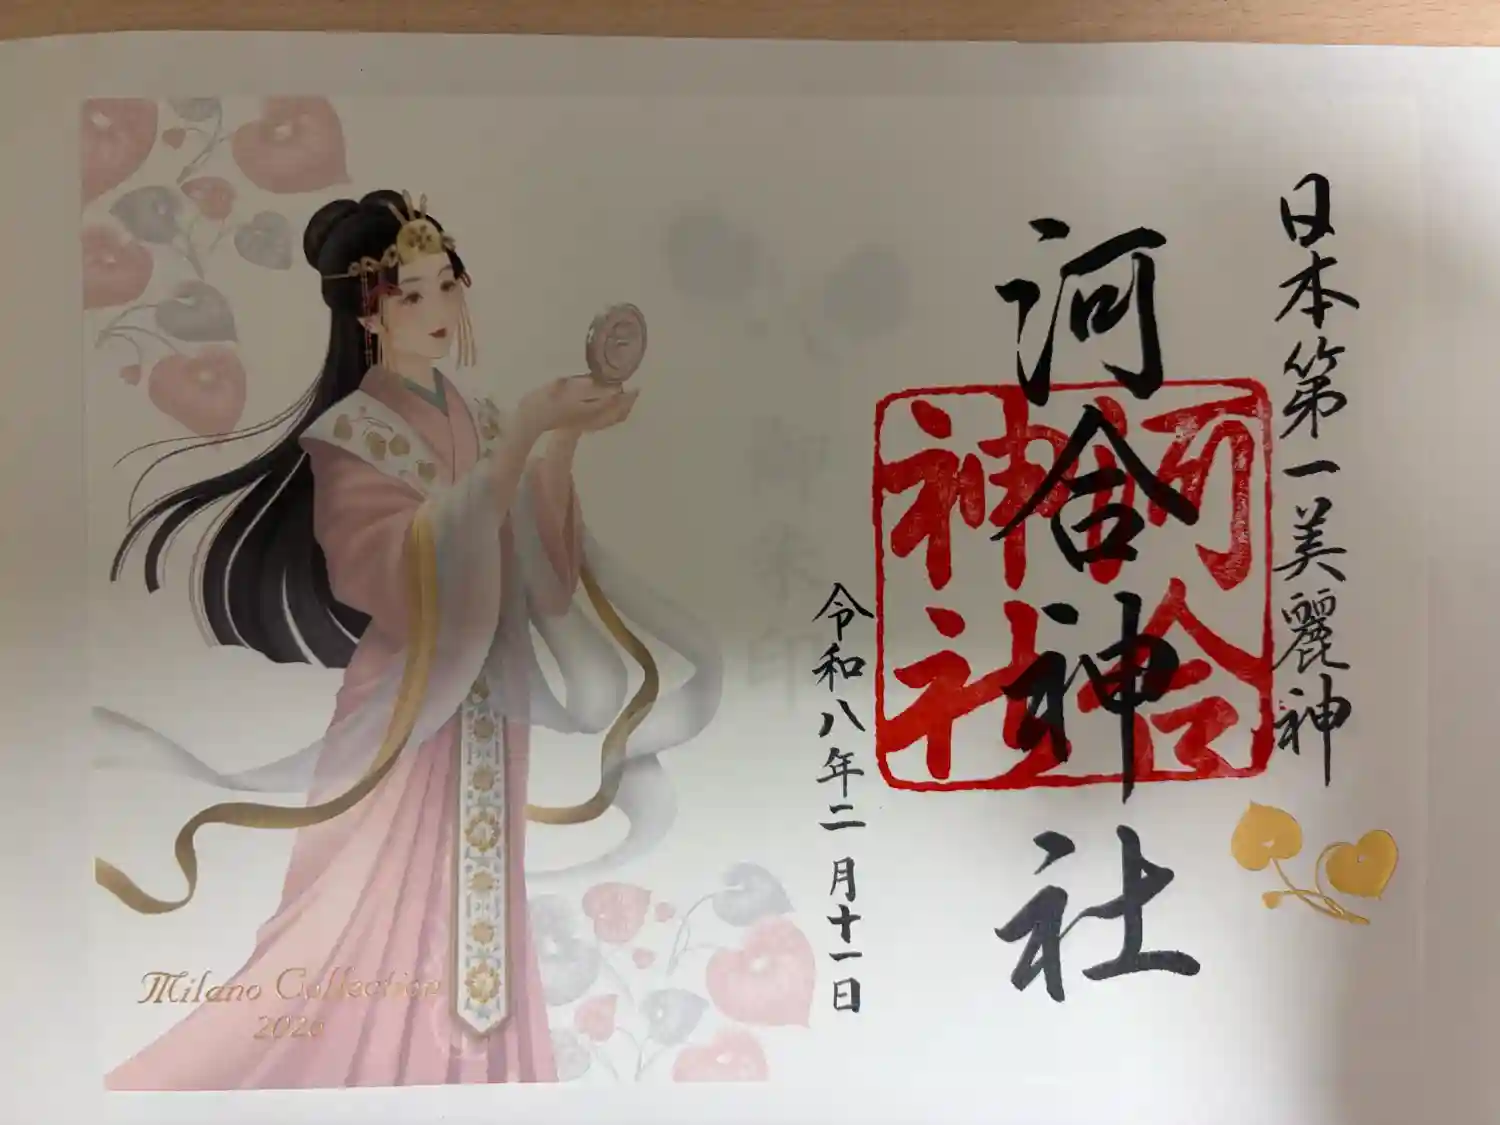 日本第一美麗神
河合神社
河合神社
令和八年二月十一日
御朱印
Milano Collection
2026